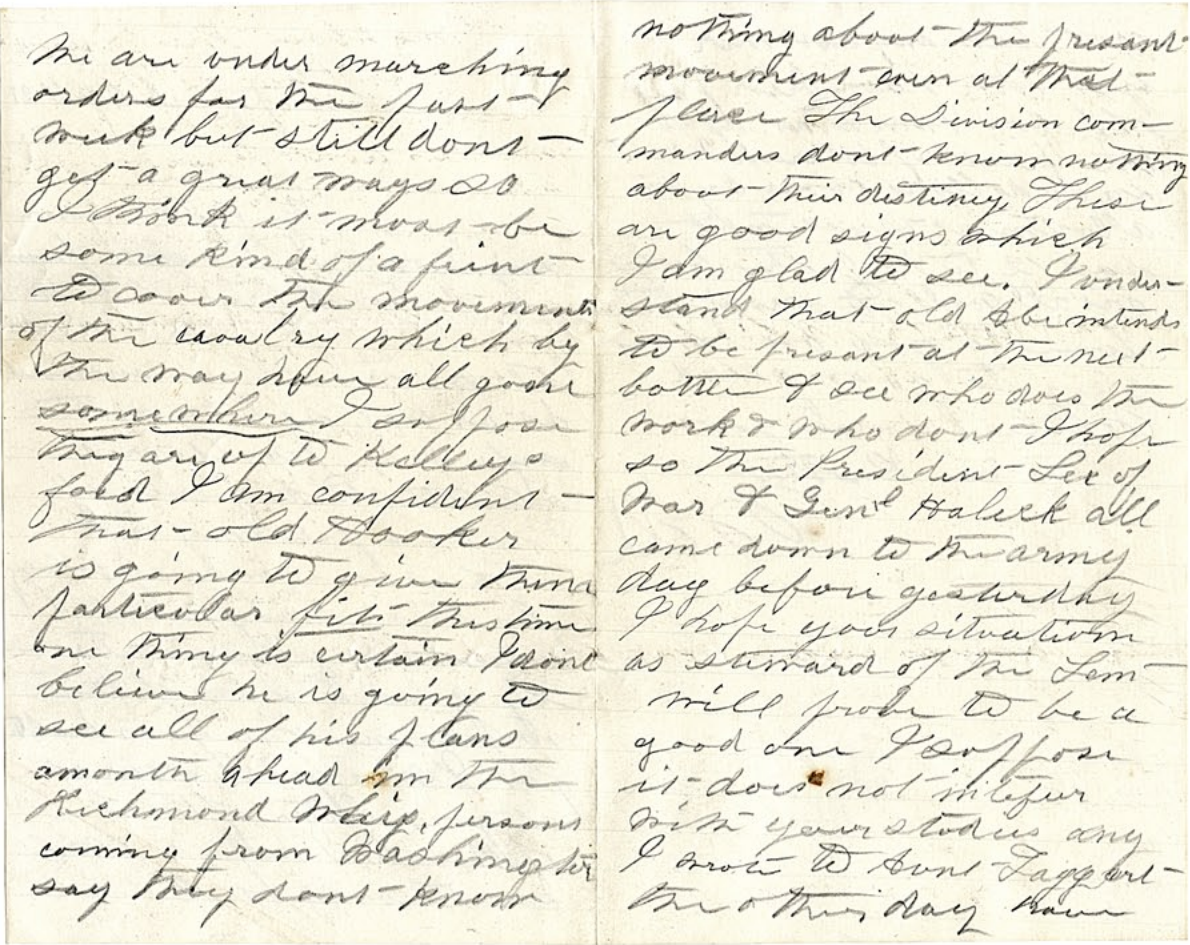 We are under marching
orders for the past
week but still dont
get a great ways so
I think it must be
some kind of a feint
to cover the movements
of the cavalry which by
the way have all gone
somewhere I suppose
they are up to Kelleys
ford I am confident
that old Hooker
is going to give them
particular fits this time
one thing is certain I dont
believe he is going to
see all of his plans
a month ahead in the
Richmond Whig. persons
coming from Washington
say they dont know
nothing about the presant
movement even at that
place The Division com-
manders dont know nothing
about their destiney These
are good signs which
I am glad to see. I under-
stand that old Abe intends
to be presant at the next
battle & see who does the
work & who dont I hope
so the President Sec of
War & Genl Haleck all
came down to the army
day before yesterday
I hope your situation
as steward of the Sem
will prove to be a
good one I suppose
it does not intefeur
with your studies any
I wrote to Aunt Taggart
the other day have